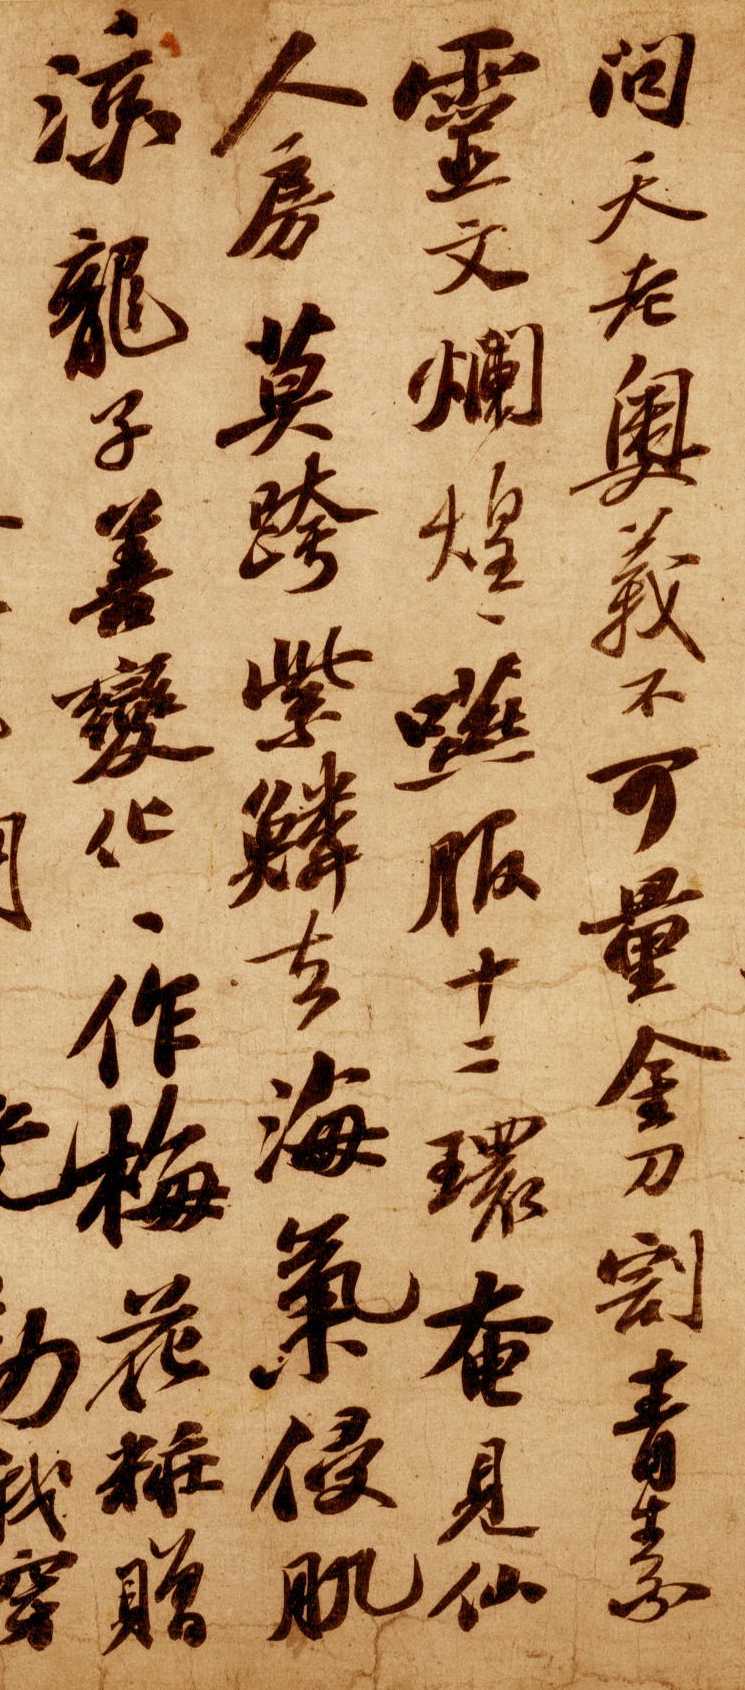 问天老奥義不可量金刀割青素
靈文爛煌煌嚥服十二環奄見仙
人房莫跨紫鱗去海氣侵肌
涼龍子善變化化作梅花粧贈
我穿